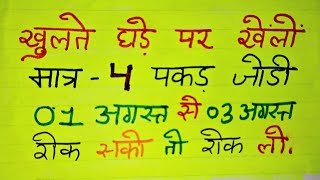 खुलते घड़े पर खेलों
मात्र - 4 पकड़ जोडी
01 अगस्त से 03 अगस्त
रोक सको तो रोक लो.